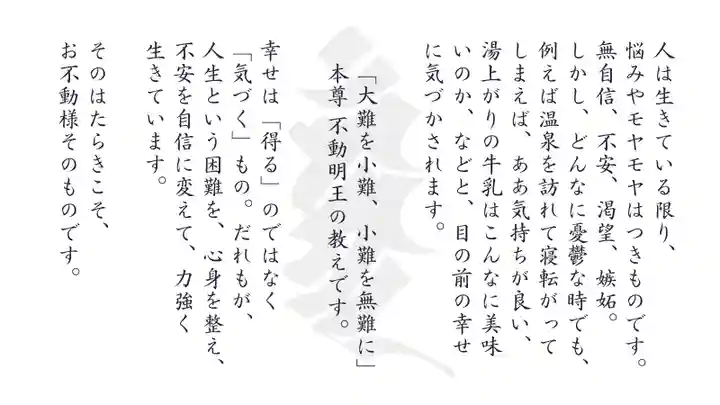 人は生きている限り、
悩みやモヤモヤはつきものです。
無自信、不安、渇望、嫉妬。
しかし、どんなに憂鬱な時でも、
例えば温泉を訪れて寝転がって
しまえば、ああ気持ちが良い、
湯上がりの牛乳はこんなに美味
いのか、などと、目の前の幸せ
に気づかされます。
「大難を小難、小難を無難に」
本尊 不動明王の教えです。
幸せは「得る」のではなく
「気づく」もの。だれもが、
人生という困難を、心身を整え、
不安を自信に変えて、力強く
生きています。
そのはたらきこそ、
お不動様そのものです。